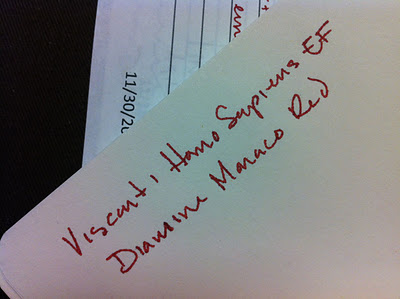 11/30/20
em
Visconti Homo Sapiens EF
Diamine Monaco Red